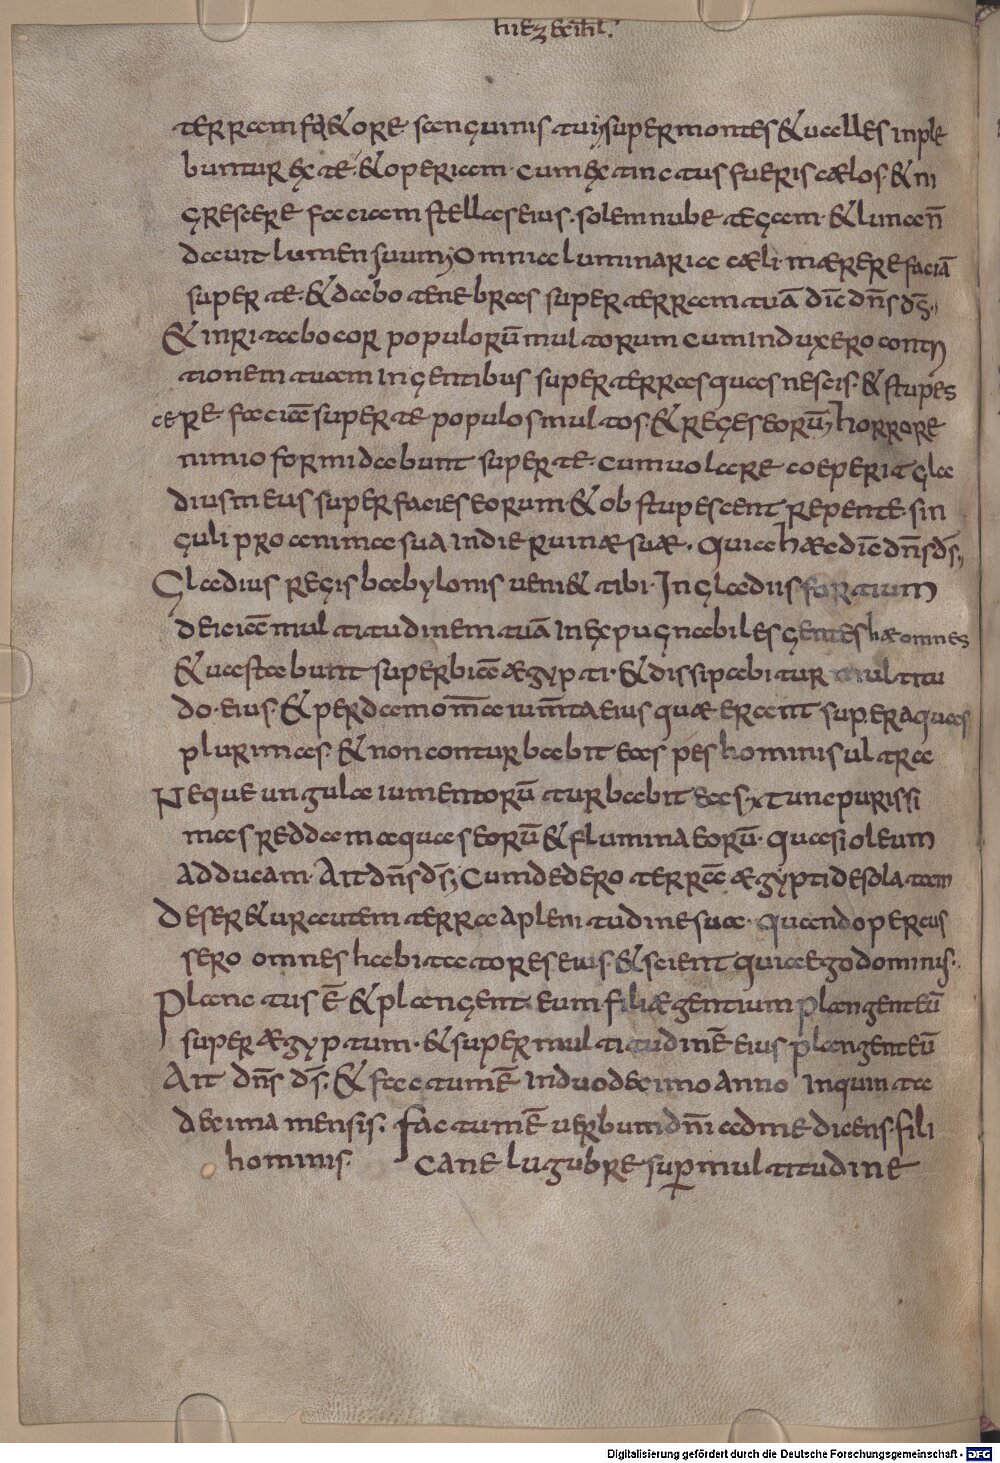 hiezecihl.
terram fętore sanguinis tui; super montes & ualles inple
buntur ex te. & operiam. cum extinctus fueris cælos. & ni
grescere faciam stellas eius. solem nube tegam. & luna n̄
dauit lumen suum; Omnia luminaria cæli. mærere faciā
super te. & dabo tenebras super terram tuā dic̄ dn̄s ds̄;
& inritabo cor populorū multorum cum induxero contri
tionem tuam in gentibus super terras quas nescis. & stupes
cere faciā super te populos multos. & reges eorū; horrore
nimio formidabunt super te. cum uolare coeperit gla
dius meus super facies eorum. & obstupescent repente. sin
guli pro anima sua in die ruinæ suæ. Quia hæc dic̄ dn̄s ds̄;
Gladius regis babylonis ueni& tibi. In gladiis fortium
deiciā multitudinem tuā inexpugnabiles gentes hæ omnes
& uastabunt superbiā ægypti. & dissipabitur multitu
do eius. & perdam om̄a ium̄ta eius quæ erant super aquas
plurimas. & non conturbabit eas pes hominis ultra
Neque ungula iumentorū turbabit eas; tunc purissi
mas reddam aquas eorū & flumina eorū. quasi oleum
adducam. Ait dn̄s ds̄; Cum dedero terrā ægypti desolatam
Deser&ur autem terra a plenitudine sua. quando percus
sero omnes habitatores eius. & scient quia ego dominus.
Planctus ē & plangent eum filiæ gentium plangent eū
super ægyptum. & super multitudinē eius plangent eū
Ait dn̄s ds̄. & factum ē In duodecimo anno In quinta
decima mensis. factum ē uerbum dn̄i ad me dicens. fili
hominis. Cane lugubre sup̱ multitudine
Digitalisierung gefördert durch die Deutsche Forschungsgemeinschaft - DFG